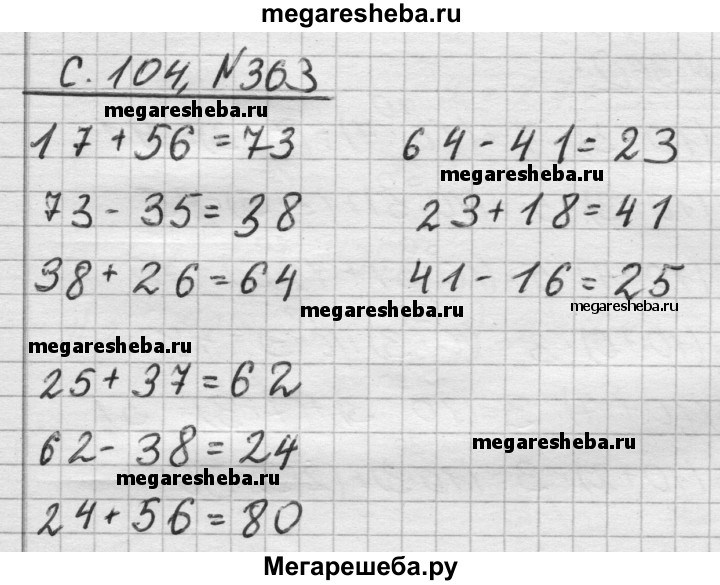 megaresheba.ru
С. 104, N363
megaresheba.ru
17+56=73
73-35=38
38+26=64
64-41=23
megaresheba.ru
23+18=41
41-16=25
megaresheba.ru
megaresheba.ru
megaresheba.ru
25+37=62
62-38=24
megaresheba.ru
megaresheba.ru
24+56=80
Мегарешеба.ру